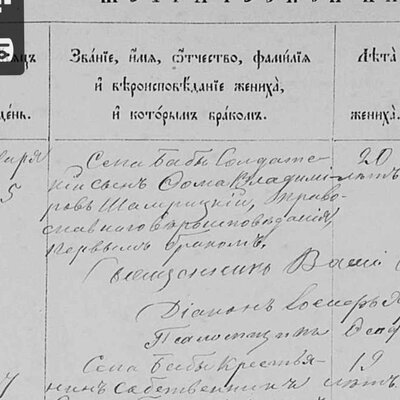 Зва́нїе, и҆́мя, ѻ҆́тчество, фами́лїя
и҆ вѣроисповѣ́данїе жениха̀,
и҆ кото́рымъ бра́комъ.
Лѣ́та
жениха̀.
день.
Села Бабы Солдатс-
кій сынъ Ѳома Владими-
ровъ Шамрицкій, право-
славнаго вѣроисповѣданія,
первымъ бракомъ.
20
лѣтъ
5
Священникъ Васи
Діаконъ
Псаломщикъ
Села Бабы Крестья-
нинъ собственникъ
19
лѣтъ.
7